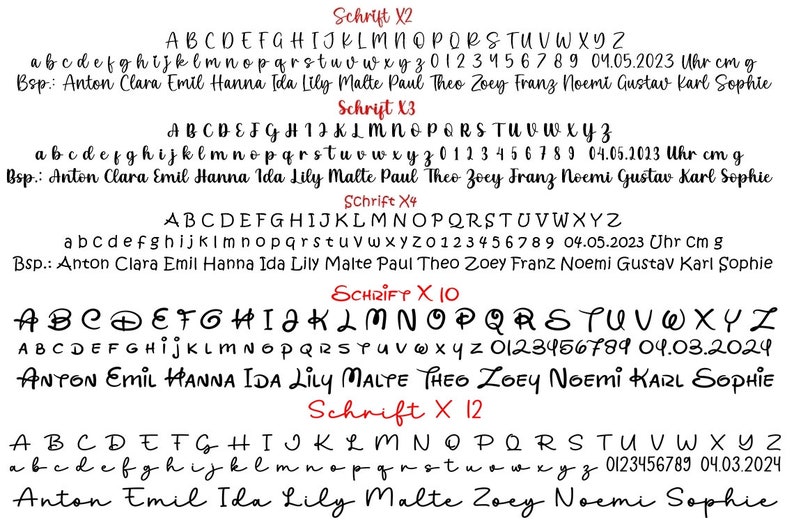 Schrift X2
A B C D E F G H I J K L M N O P Q R S T U V W X Y Z
a b c d e f g h i j k l m n o p q r s t u v w x y z 0 1 2 3 4 5 6 7 8 9 04.05.2023 Uhr cm g
Bsp.: Anton Clara Emil Hanna Ida Lily Malte Paul Theo Zoey Franz Noemi Gustav Karl Sophie
Schrift X3
A B C D E F G H I J K L M N O P Q R S T U V W X Y Z
a b c d e f g h i j k l m n o p q r s t u v w x y z 0 1 2 3 4 5 6 7 8 9 04.05.2023 Uhr cm g
Bsp.: Anton Clara Emil Hanna Ida Lily Malte Paul Theo Zoey Franz Noemi Gustav Karl Sophie
Schrift X4
A B C D E F G H I J K L M N O P Q R S T U V W X Y Z
a b c d e f g h i j k l m n o p q r s t u v w x y z 0 1 2 3 4 5 6 7 8 9 04.05.2023 Uhr cm g
Bsp.: Anton Clara Emil Hanna Ida Lily Malte Paul Theo Zoey Franz Noemi Gustav Karl Sophie
Schrift X 10
A B C D E F G H I J K L M N O P Q R S T U V W X Y Z
a b c d e f g h i j k l m n o p q r s t u v w x y z 0123456789 04.03.2024
Anton Emil Hanna Ida Lily Malte Theo Zoey Noemi Karl Sophie
Schrift X 12
A B C D E F G H I J K L M N O P Q R S T U V W X Y Z
a b c d e f g h i j k l m n o p q r s t u o w x y z 0123456789 04.03.2024
Anton Emil Ida Lily Malte Zoey Noemi Sophie